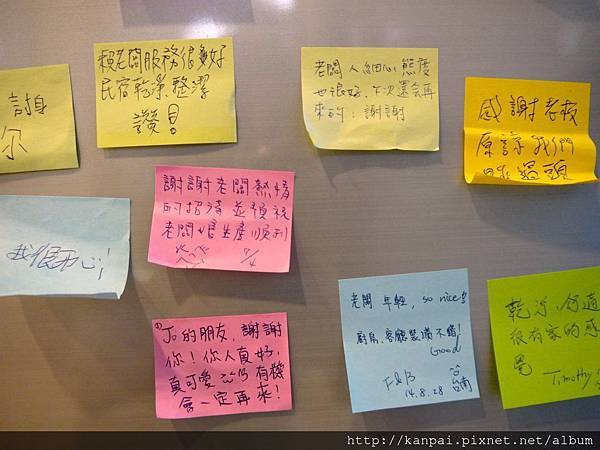 謝
尔
賴老闆服務很好
民宿乾淨整潔
讚
老闆人細心態度
也很好,下次還会再
來的:謝謝
感謝老板
原諒我們
睡過頭
謝謝老闆熱情
的招待並預祝
老闆娘生產順利
7/4
我很开心!
Jo的朋友,謝謝
你!你人真好,
真可愛 有機
會一定再來!
老闆 年輕, so nice
廚房,客廳裝潢不錯!
Good
F&B
14.8.28 台南
乾淨,舒適
很有家的感
覺
Timothy
http://kanpai.pixnet.net/album